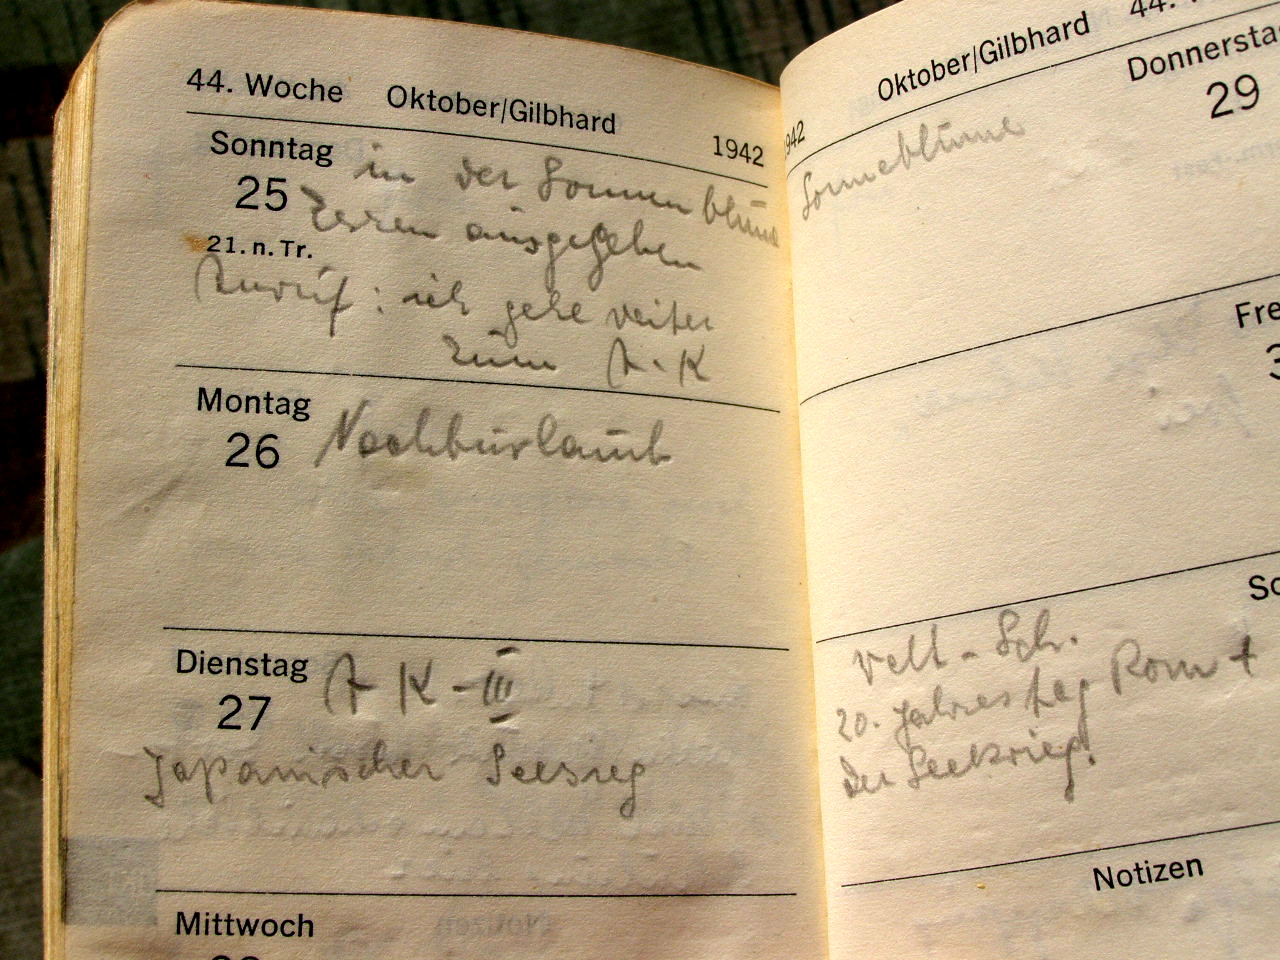 44. Woche Oktober/Gilbhard 1942
Sonntag in der Sonnenblume
25 ausgegeben
21. n. Tr.
Anruf: ich gehe weiter
zum A-K
Montag
26 Nachturlaub
Dienstag A K - III
27
Japanischer Seesieg
Mittwoch
Oktober/Gilbhard 44.
1942 Donnerstag
29
Sonneblume
Fre
3
So
Welt - Sch.
20. Jahrestag Rom +
Der Seekrieg!
Notizen